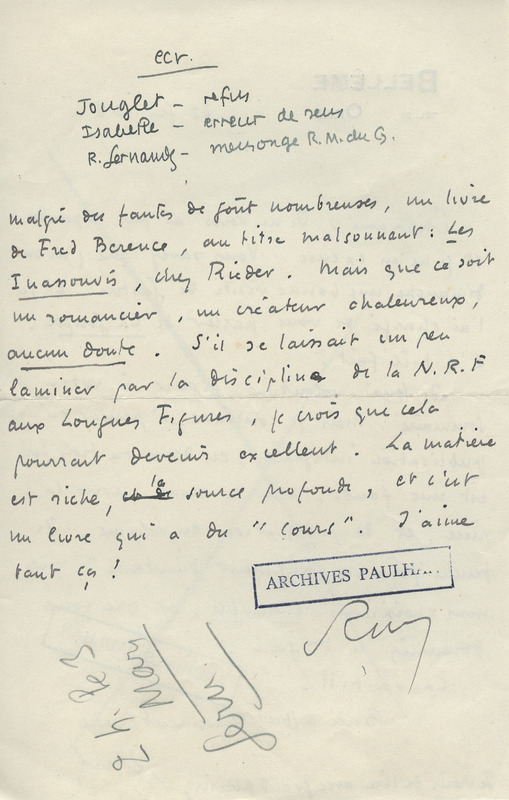 ecr.
Jouglet – refus
Isabelle – erreur de sens
R. Fernandez – mensonge R. M. du G.
malgré des fautes de goût nombreuses, un livre
de Fred Berence, au titre malsonnant : Les
Inassouvis, chez Rieder. Mais que ce soit
un romancier, un créateur chaleureux,
aucun doute. S'il se laissait un peu
laminer par la discipline de la N.R.F
aux Longues Figures, je crois que cela
pourrait devenir excellent. La matière
est riche, la source profonde, et c'est
un livre qui a du "cours". J'aime
tant ça !
ARCHIVES PAULHAN